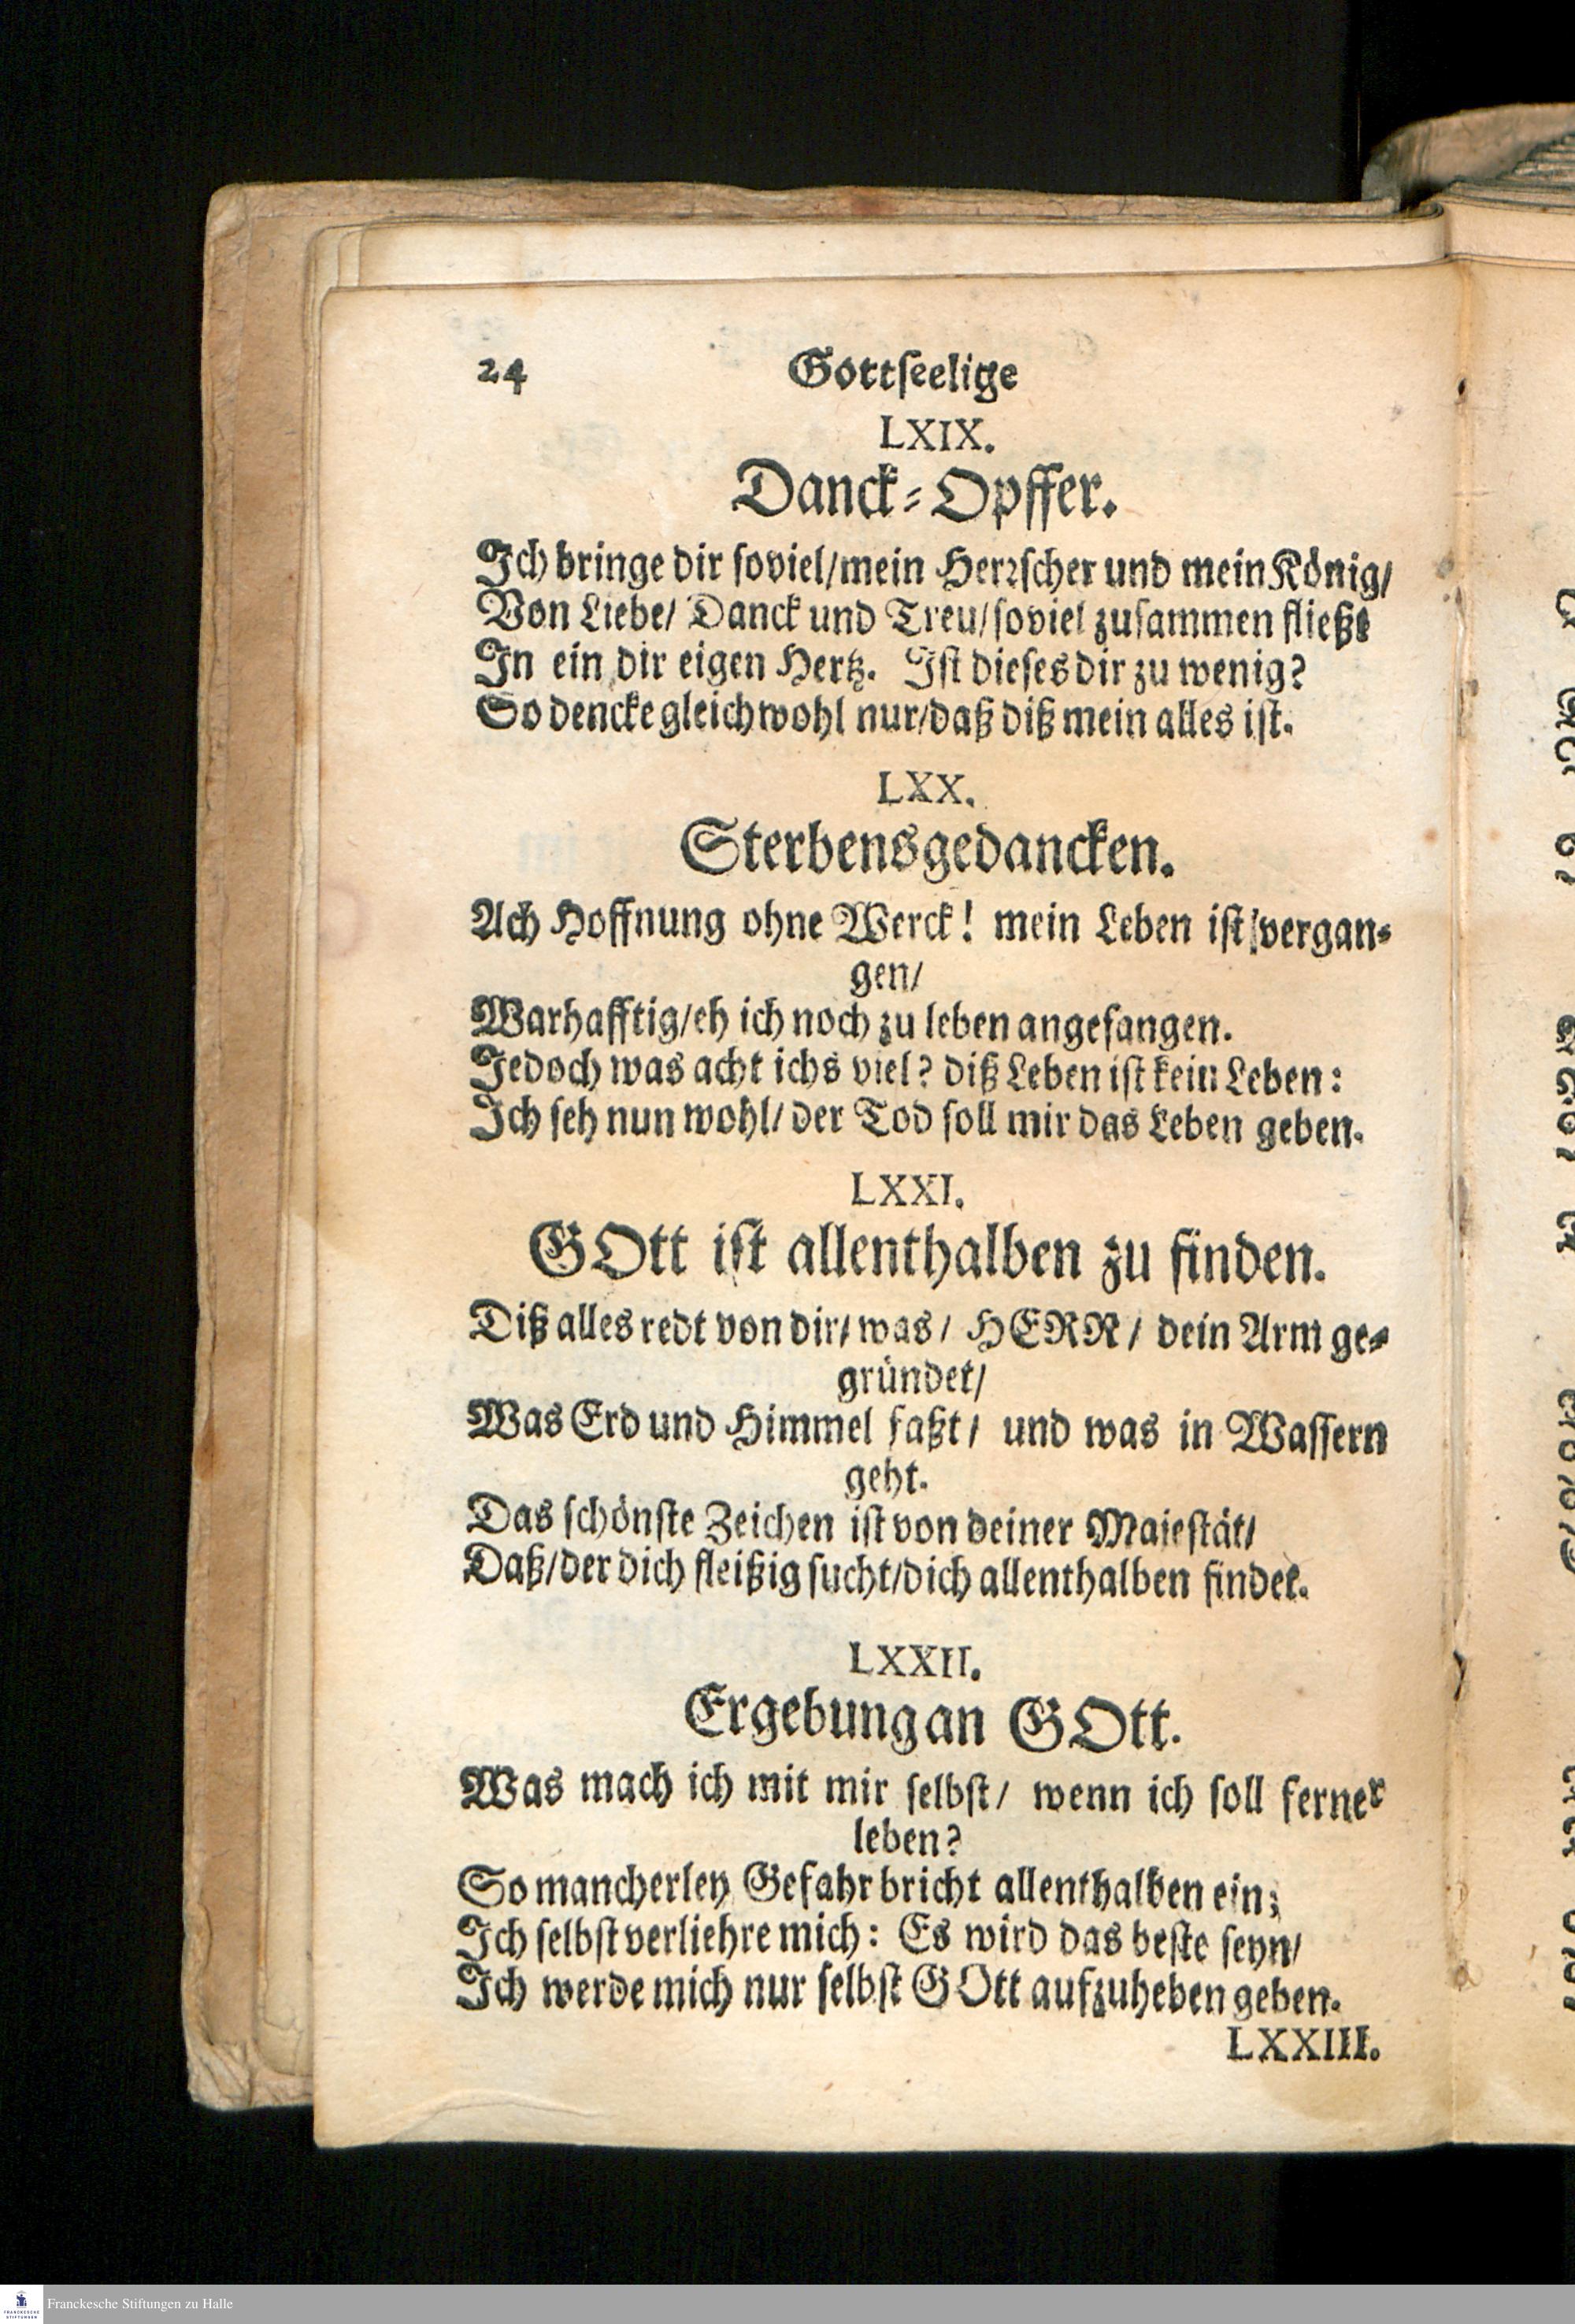 24 Gottſeelige
LXIX.
Danck-Opffer.
Ich bringe dir ſoviel/mein Herrſcher und mein König/
Von Liebe/ Danck und Treu/ſoviel zuſammen fließt
In ein dir eigen Hertz. Iſt dieſes dir zu wenig?
So dencke gleichwohl nur/daß diß mein alles iſt.
LXX.
Sterbensgedancken.
Ach Hoffnung ohne Werck! mein Leben iſt vergan-
gen/
Warhafftig/eh ich noch zu leben angefangen.
Jedoch was acht ichs viel? diß Leben iſt kein Leben:
Ich ſeh nun wohl/ der Tod ſoll mir das Leben geben.
LXXI.
GOtt iſt allenthalben zu finden.
Diß alles redt von dir/ was/ HERR/ dein Arm ge-
gründet/
Was Erd und Himmel faßt/ und was in Waſſern
geht.
Das ſchönſte Zeichen iſt von deiner Majeſtät/
Daß/der dich fleißig ſucht/dich allenthalben findet.
LXXII.
Ergebung an GOtt.
Was mach ich mit mir ſelbſt/ wenn ich ſoll ferner
leben?
So mancherley Gefahr bricht allenthalben ein;
Ich ſelbſt verliehre mich: Es wird das beſte ſeyn/
Ich werde mich nur ſelbſt GOtt aufzuheben geben.
LXXIII.
Franckesche Stiftungen zu Halle